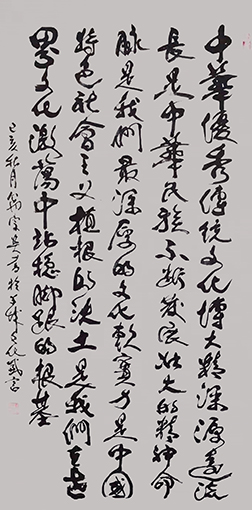 中華優秀傳統文化博大精深源遠流
長是中華民族不斷發展壯大的精神命
脉是我們最深厚的文化軟實力是中國
特色社會主义植根的沃土是我們在世
界文化激蕩中站穩脚跟的根基
己亥秋月